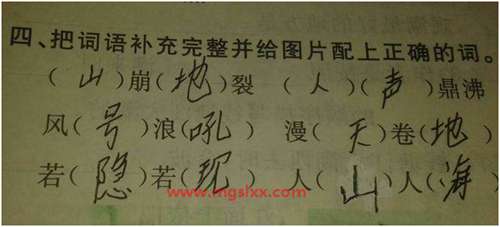 四、把词语补充完整并给图片配上正确的词。
(山)崩(地)裂 (人)(声)鼎沸
风(号)浪(吼) 漫(天)卷(地)
若(隐)若(现) 人(山)人(海)
www.mgslxx.com